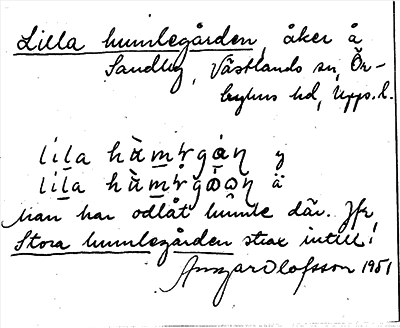 Lilla humlegården, åker å
Sandby, Västlands sn, Ör-
byhus hd, Upps. l.
lila hàm̥r gán y
lila hàm̥r góon ä
Man har odlat humle där. Jfr
Stora humlegården strax intill!
Ansgar Olofsson 1951